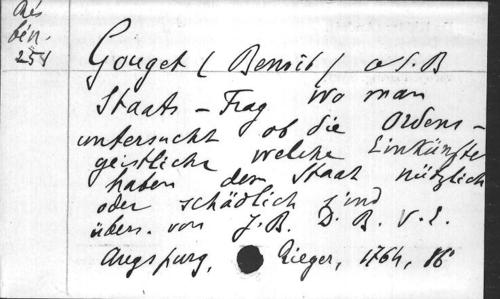 254
Gouget ( Benoît ) O.S.B
Staats - Frag wo man
untersucht ob die Ordens-
geistliche welche Einkünfte
haben dem Staat nützlich
oder schädlich sind
übers. von J.B. D. B. V. E.
Augspurg, Rieger, 1764, 8°